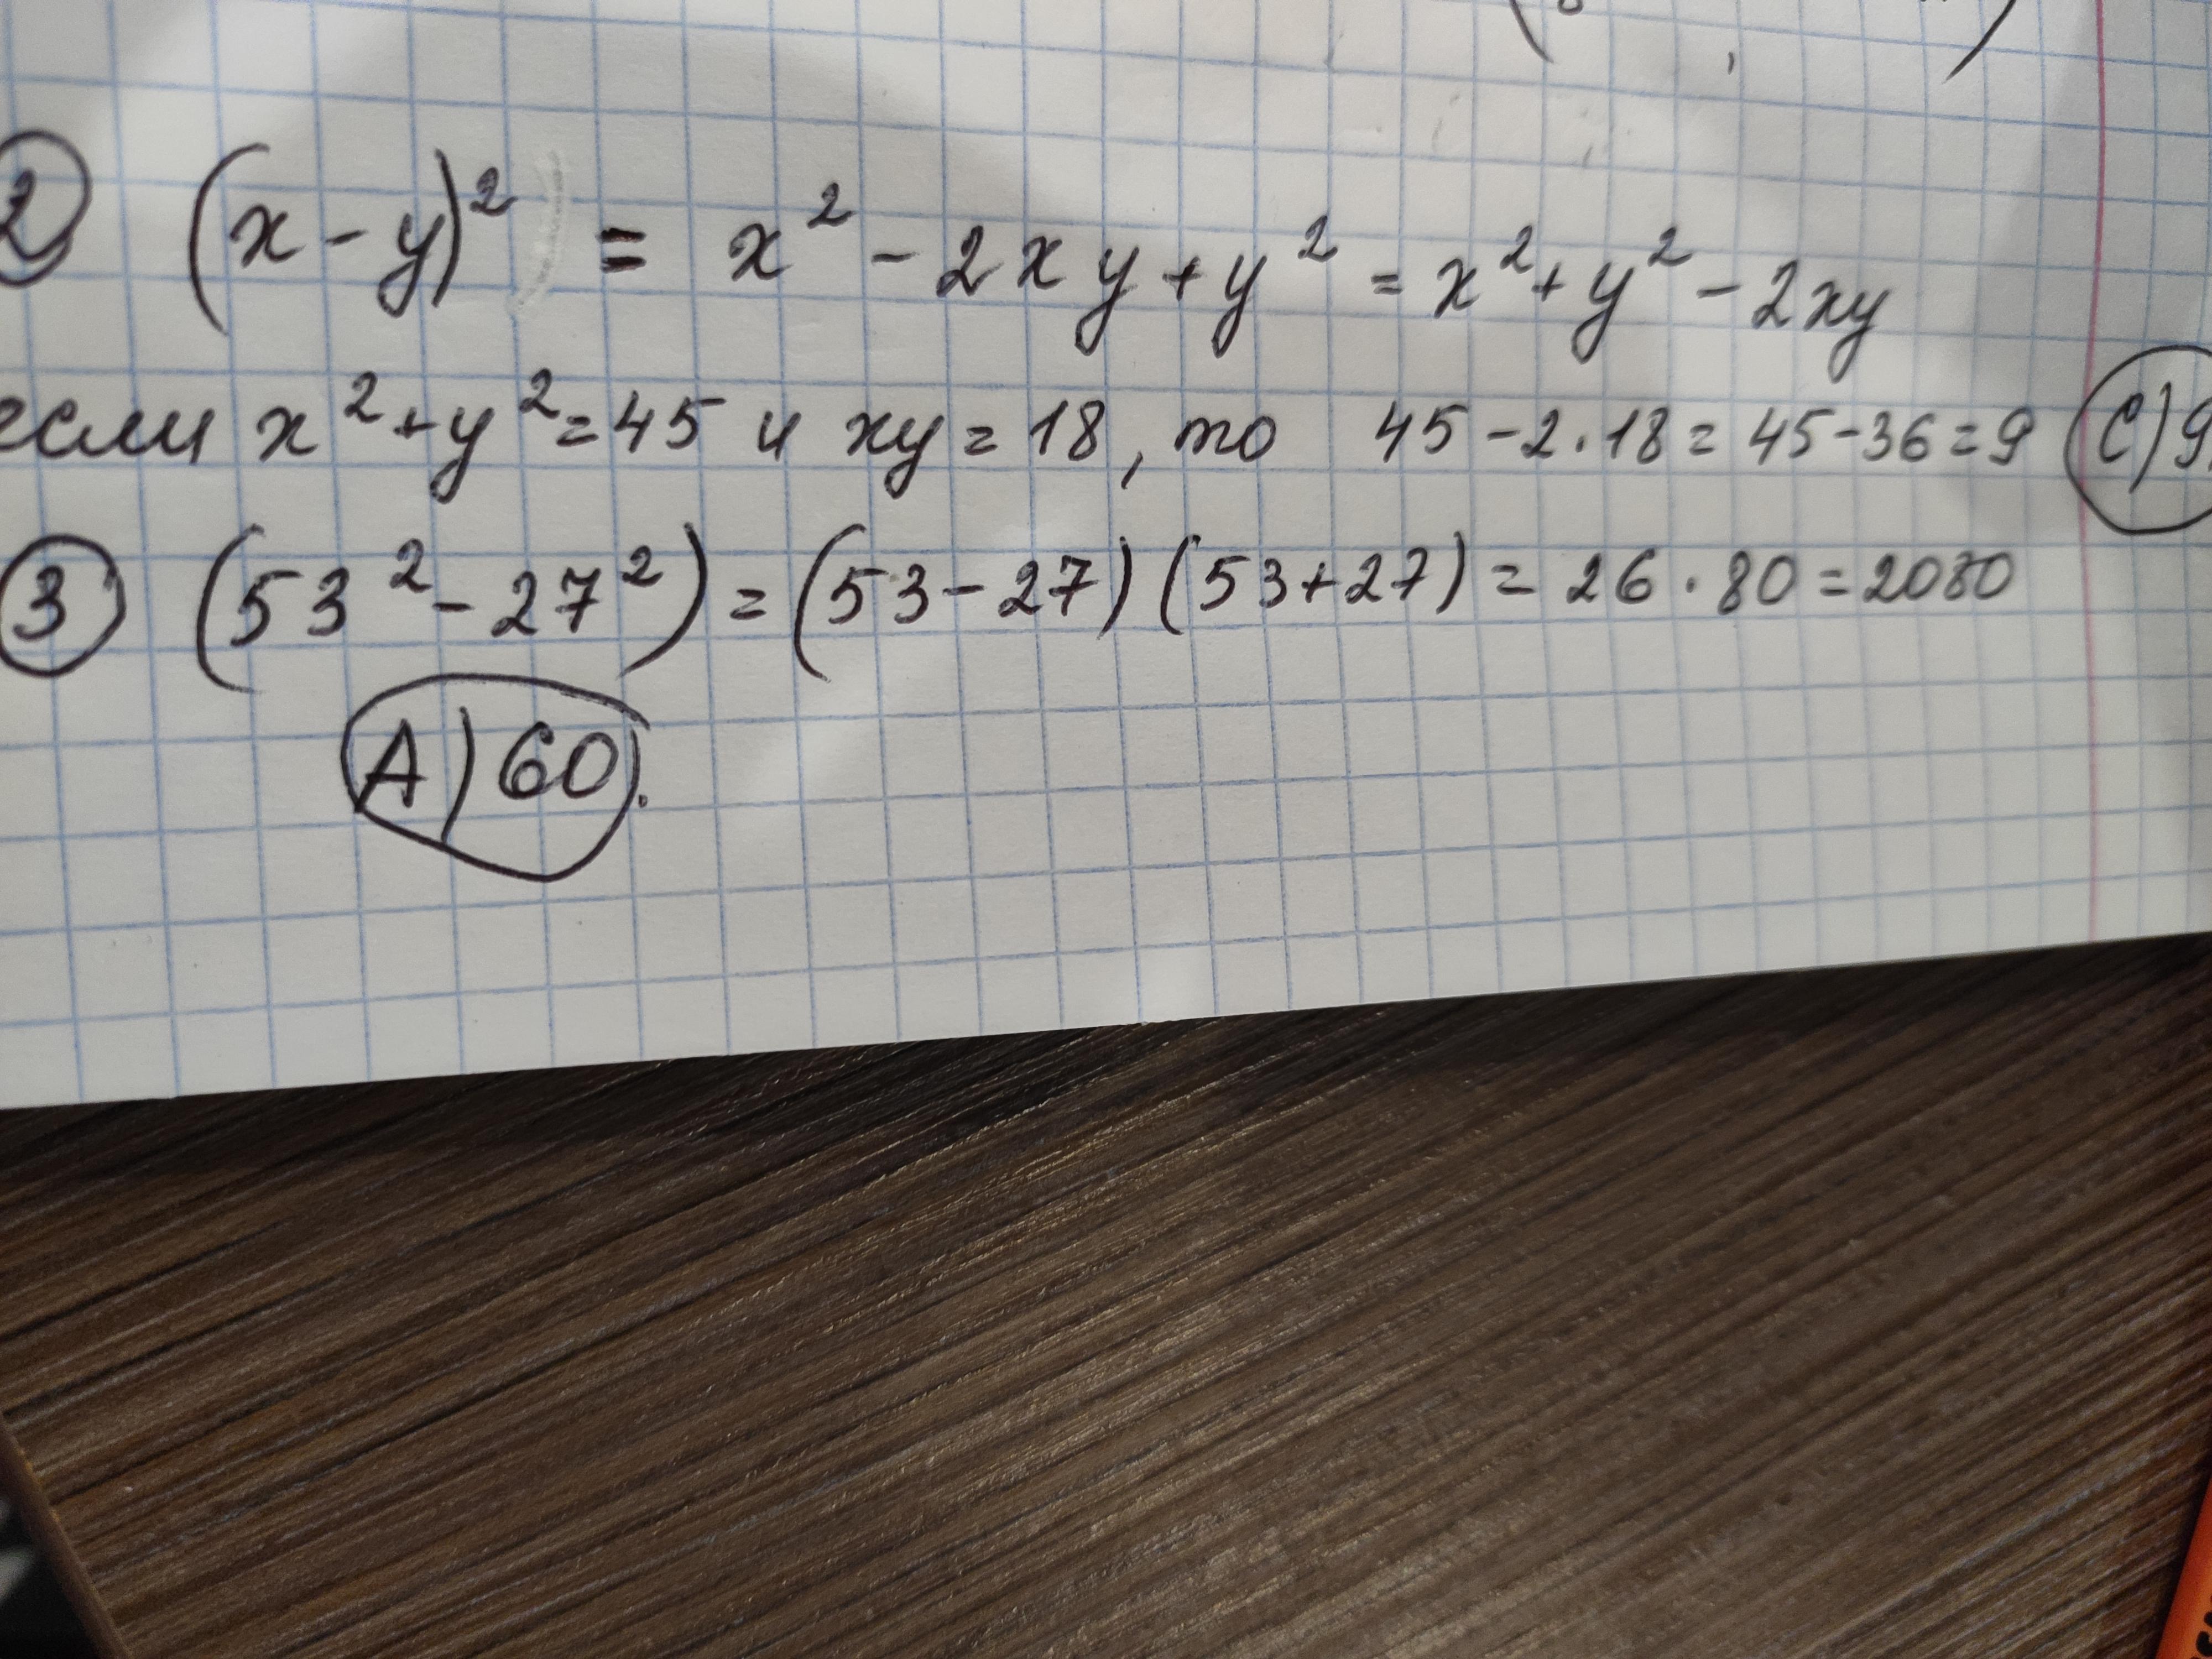 2 (x-y)² = x² - 2xy + y² = x² + y² - 2xy
если x² + y² = 45 и xy = 18, то 45 - 2·18 = 45 - 36 = 9 C) 9.
3 (53² - 27²) = (53 - 27)(53 + 27) = 26 · 80 = 2080
A) 60.